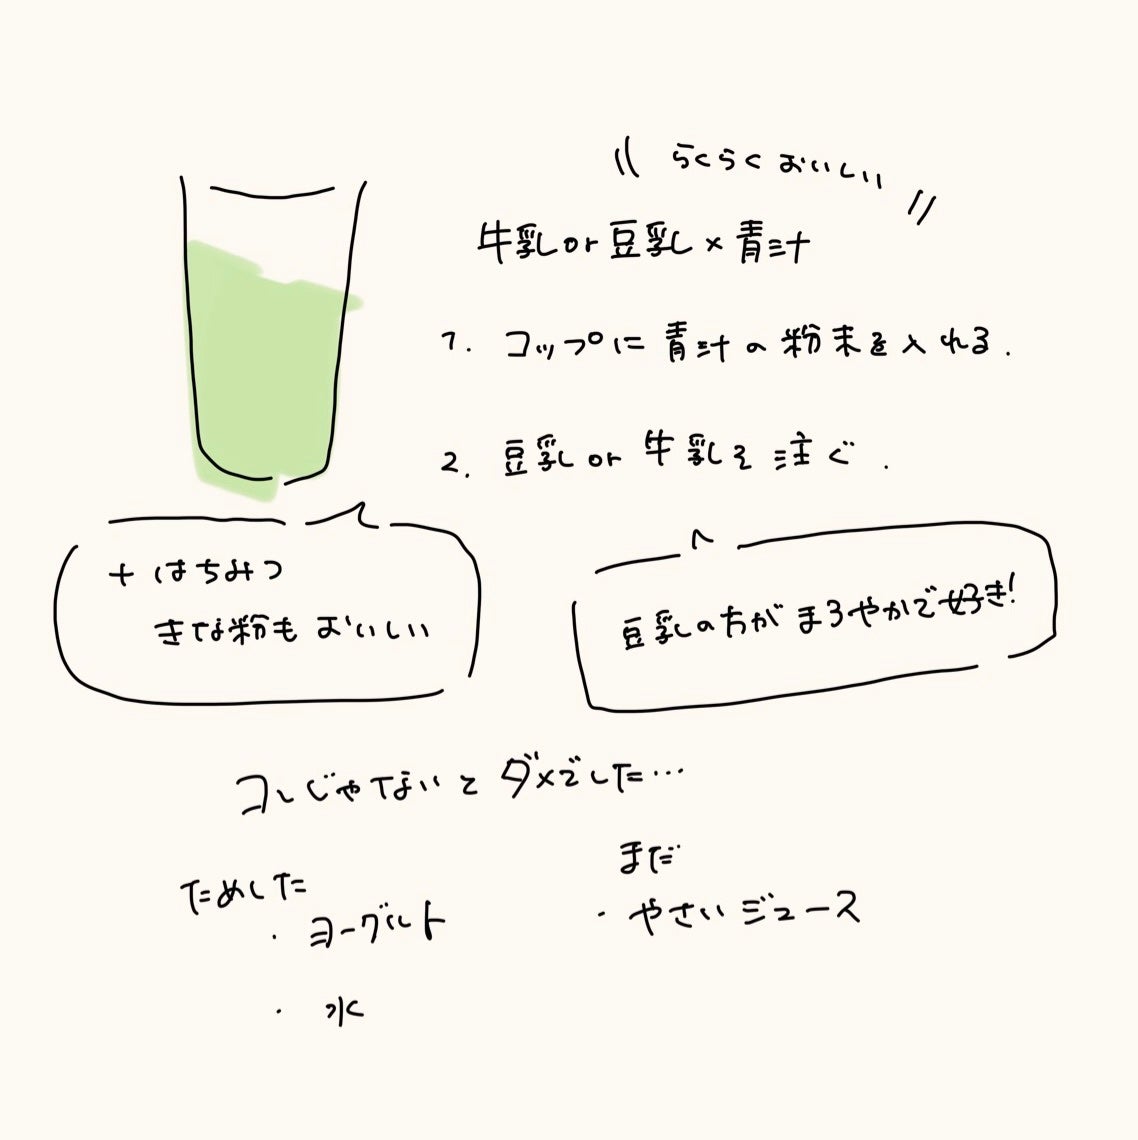 らくらくおいしい
牛乳or豆乳×青汁
1. コップに青汁の粉末を入れる.
2. 豆乳or牛乳を注ぐ.
+ はちみつ
きな粉も おいしい
豆乳の方がまろやかで好き!
コレじゃないとダメでした…
ためした
・ヨーグルト
・水
まだ
・やさいジュース